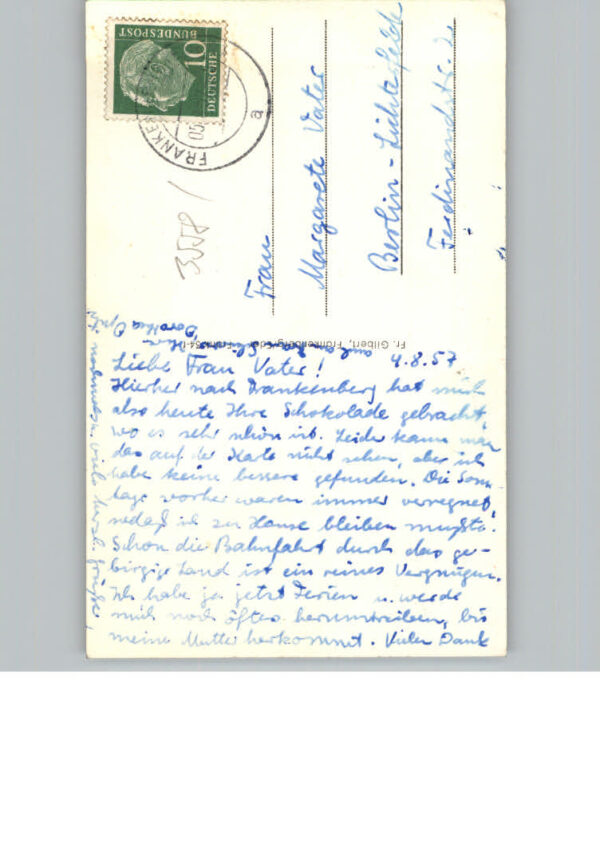 4.8.57
Liebe Frau Vater!
Hierher nach Frankenberg hat mich
also heute Ihre Schokolade gebracht,
wo es sehr schön ist. Leider kann man
das auf der Karte nicht sehen, aber ich
habe keine bessere gefunden. Die Sonn
tage vorher waren immer verregnet,
sodaß ich zu Hause bleiben mußte.
Schon die Bahnfahrt durch das ge-
birgige Land ist ein reines Vergnügen.
Ich habe ja jetzt Ferien u. werde
mich noch öfter herumtreiben, bis
meine Mutter herkommt. Vielen Dank
nochmals u. viele herzl. Grüße
Ihre
Dorothea
auch an
Frau
Margarete Vater
Berlin-Lichterfelde
Ferdinandstr. 2
3558 /
Fr. Gilbert, Frankenberg/Eder
DEUTSCHE
BUNDESPOST
10
FRANKENBERG
a